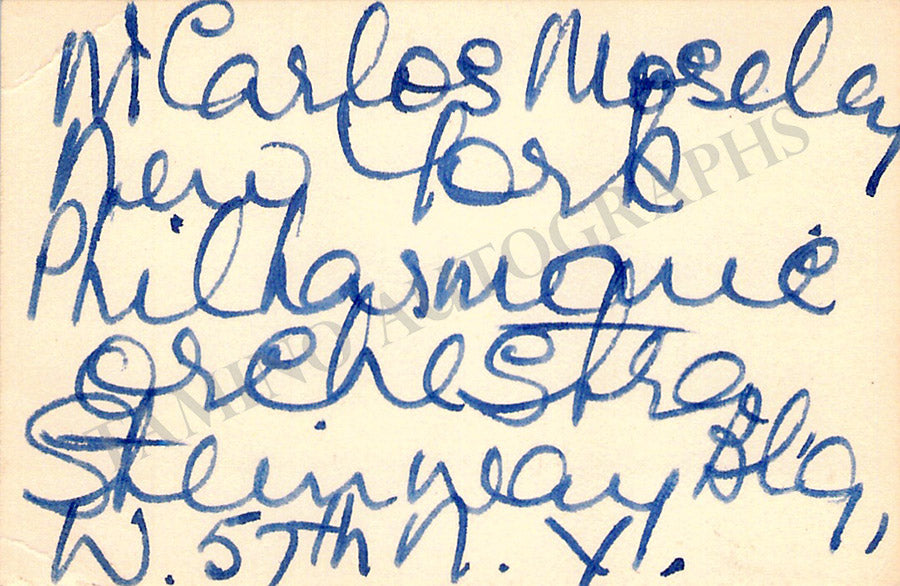 Mr Carlos Moseley
New York
Philharmonic
Orchestra
Steinway Bldg,
W. 57th N. Y.
TAMINO AUTOGRAPHS